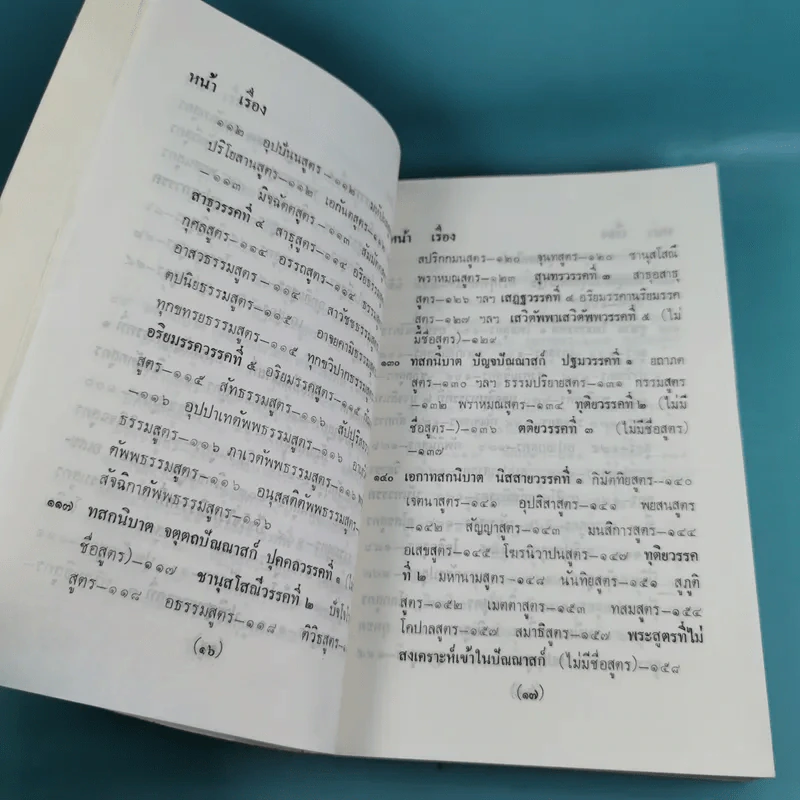 หน้า เรื่อง
๑๑๒ อุปปันนสูตร–๑๑๒
ปริโยสานสูตร–๑๑๒ เอกันตสูตร–๑๑๓
–๑๑๓ มิจฉัตตสูตร–๑๑๓
สาธุวรรคที่ ๔ สาธุสูตร–๑๑๔
กุศลสูตร–๑๑๔ อรรถสูตร–๑๑๔
อาสวธรรมสูตร–๑๑๔ สาวัชชธรรมสูตร
ตปนิยธรรมสูตร–๑๑๕ อาจยคามิธรรมสูตร
ทุกขทรยธรรมสูตร–๑๑๕ ทุกขวิปากธรรมสูตร
อริยมรรควรรคที่ ๕ อริยมรรคสูตร–๑๑๕
สูตร–๑๑๕ สัทธรรมสูตร–๑๑๖ สัปปุริสธรรม
–๑๑๖ อุปปาเทตัพพธรรมสูตร–๑๑๖
ธรรมสูตร–๑๑๖ ภาเวตัพพธรรมสูตร–๑๑๖
ตัพพธรรมสูตร–๑๑๖ อนุสสติตัพพธรรมสูตร–
สัจฉิกาตัพพธรรมสูตร–๑๑๖
๑๑๗ ทสกนิบาต จตุตถปัณณาสก์ ปุคคลวรรคที่ ๑
ชื่อสูตร)–๑๑๗ ชานุสโสณีวรรคที่ ๒
สูตร–๑๑๘ อธรรมสูตร–๑๑๘ ติวิธสูตร–
(๑๖)
หน้า เรื่อง
สปริกกมนสูตร–๑๒๐ จุนทสูตร–๑๒๐ ชานุสโสณี
พราหมณสูตร–๑๒๓ สุนทรวรรคที่ ๓ สาธุอสาธุ
สูตร–๑๒๖ ฯลฯ เสฏฐวรรคที่ ๔ อริยมรรคานริยมรรค
สูตร–๑๒๗ ฯลฯ เสวิตัพพาเสวิตัพพวรรคที่ ๕ (ไม่
มีชื่อสูตร)–๑๒๙
๑๓๐ ทสกนิบาต ปัญจปัณณาสก์ ปฐมวรรคที่ ๑ อถาภค
สูตร–๑๓๐ ฯลฯ ธรรมปริยายสูตร–๑๓๑ กรรมสูตร
–๑๓๒ พราหมณสูตร–๑๓๔ ทุติยวรรคที่ ๒ (ไม่มี
ชื่อสูตร–)–๑๓๖ ตติยวรรคที่ ๓ (ไม่มีชื่อสูตร)
–๑๓๗
๑๔๐ เอกาทสกนิบาต นิสสายวรรคที่ ๑ กิมัตทิยสูตร–๑๔๐
เจตนาสูตร–๑๔๑ อุปสิสาสูตร–๑๔๑ พยสนสูตร
–๑๔๒ สัญญาสูตร–๑๔๓ มนสิการสูตร–๑๔๔
อเสขสูตร–๑๔๕ โมรนิวาปนสูตร–๑๔๗ ทุติยวรรค
ที่ ๒ มหานามสูตร–๑๔๘ นันทิยสูตร–๑๕๑ สุภูติ
สูตร–๑๕๒ เมตตาสูตร–๑๕๓ ทสมสูตร–๑๕๔
โคปาลสูตร–๑๕๗ สมาธิสูตร–๑๕๗ พระสูตรที่ไม่
สงเคราะห์เข้าในปัณณาสก์ (ไม่มีชื่อสูตร)–๑๕๘
(๑๗)